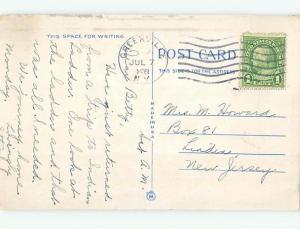 THIS SPACE FOR WRITING
POST CARD
THIS SIDE FOR THE ADDRESS
JUL 7
MADE IN U.S.A.
Sat A.M.
Dear Betty,
Have just returned
from a trip to Indian
Ladder. One look at
the ladder and that
was all I needed.
We journey home
Monday.
Mrs. M. Howard
Box 81
Linden
New Jersey.